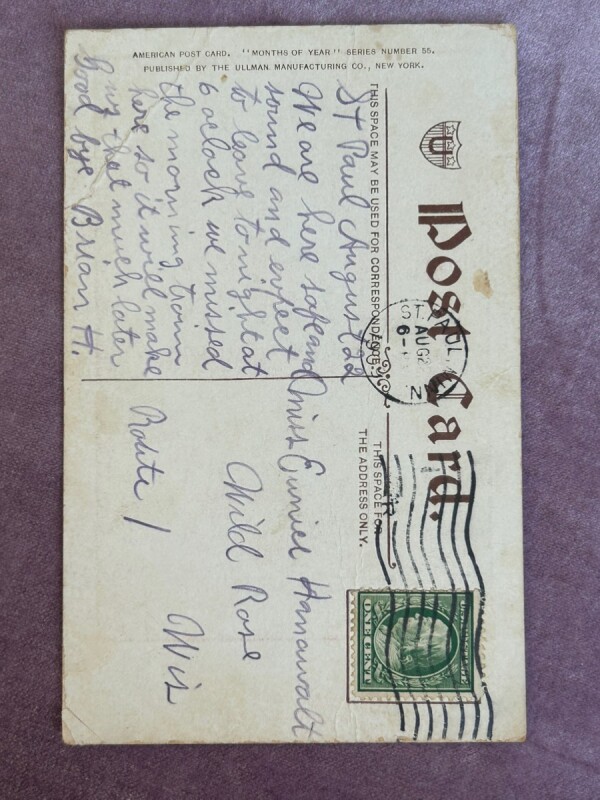 AMERICAN POST CARD. "MONTHS OF YEAR" SERIES NUMBER 55.
PUBLISHED BY THE ULLMAN MANUFACTURING CO., NEW YORK.
U
Post Card.
THIS SPACE MAY BE USED FOR CORRESPONDENCE
THIS SPACE FOR
THE ADDRESS ONLY.
St Paul August 22
We are here safe and
sound and expect
to leave to night at
6 oclock we missed
the morning train
here so it will make
us that much later
Good bye Brian H.
Miss Eunice Hanawalt
Wild Rose
Route 1
Wis
AUG
6-
ONE CENT